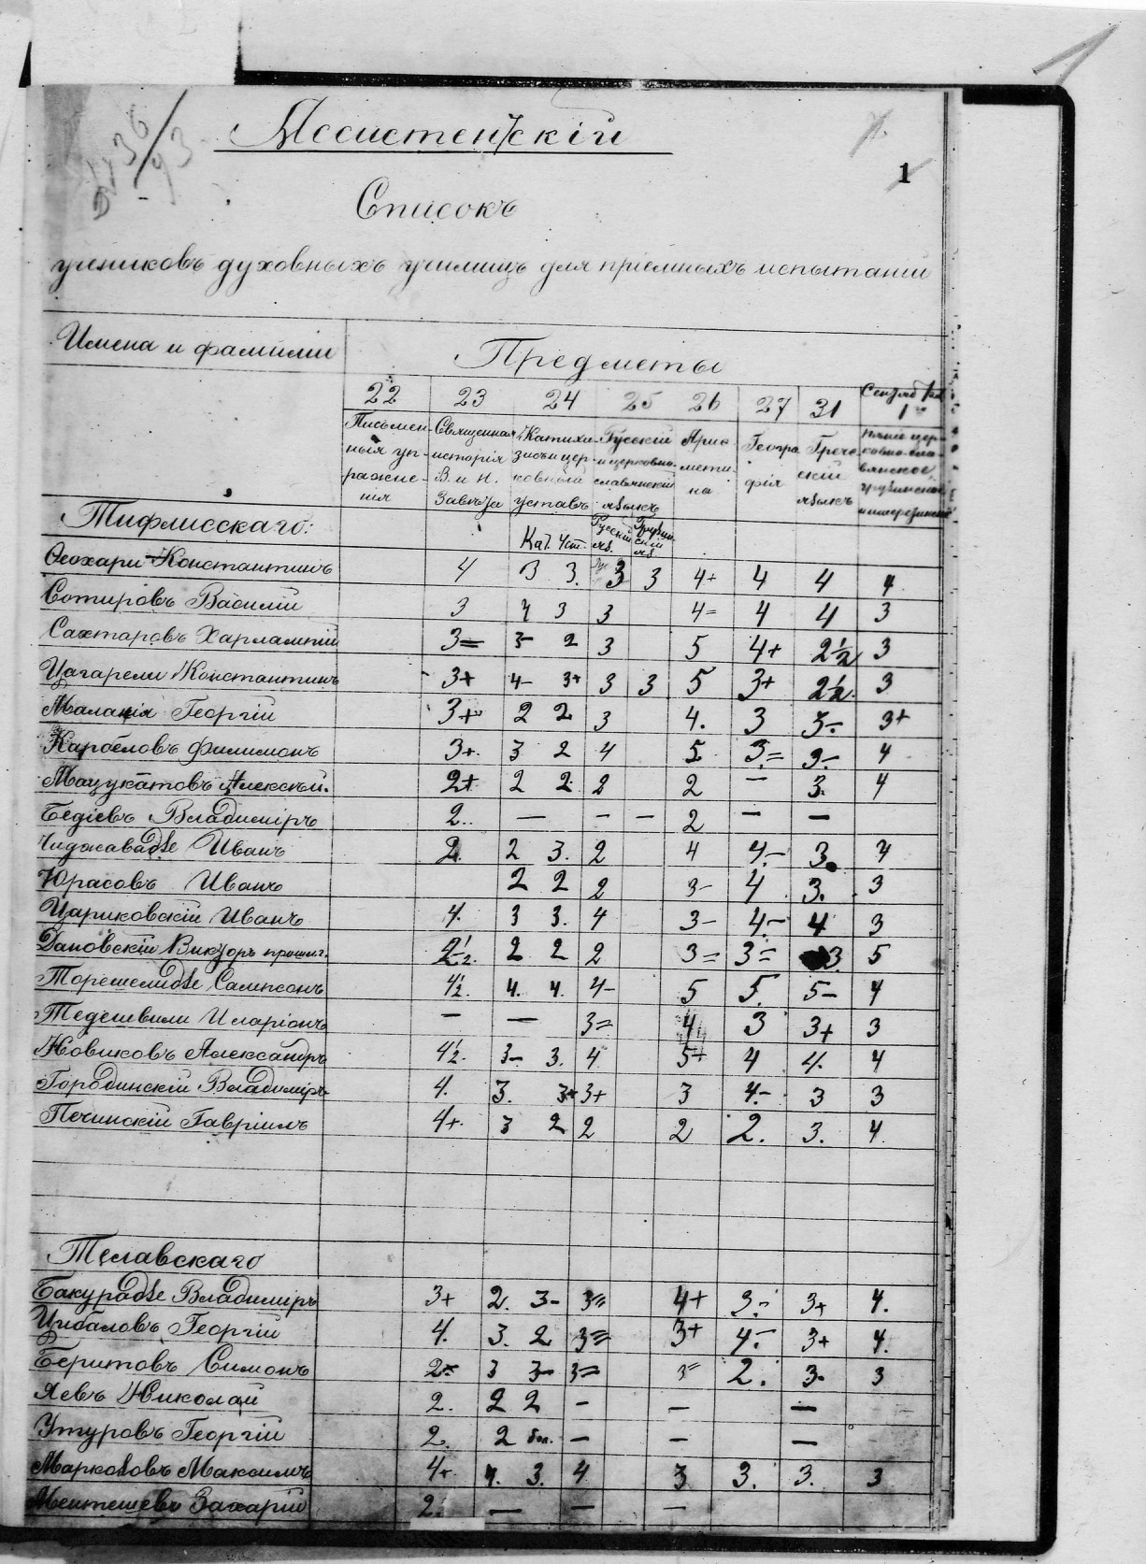 1
1
Ассистентскій
Списокъ
учениковъ духовныхъ училищъ для пріемныхъ испытаній
Имена и фамиліи Предметы
22 23 24 25 26 27 31 1
Письмен- Священная Катихи- Русскій Ариө- Геогра- Грече-
ныя уп- исторія зисъ и цер- и церковно- мети- фія скій
ражне- В. и Н. ковный славянскій ка языкъ
нія Завѣта уставъ языкъ
Тифлисскаго: Кат. Уст. Русскій яз. Грузин-скій яз.
Ѳеохари Константинъ 4 3 3. 3 3 4+ 4 4 4
Сотировъ Василій 3 4 3 3 4= 4 4 3
Сахтаровъ Харлампій 3= 3- 2 3 5 4+ 2½ 3
Цагарели Константинъ 3+ 4- 3+ 3 3 5 3+ 2½ 3
Малакія Георгій 3+ 2 2 3 4. 3 3- 3+
Карбеловъ Филимонъ 3+. 3 2 4 5 3= 3- 4
Мацукатовъ Алексѣй. 2+ 2 2 2 2 — 3. 4
Бедіевъ Владиміръ 2.. — - - 2 — —
Чиджавадзе Иванъ 2. 2 3. 2 4 4.- 3. 4
Юрасовъ Иванъ 2 2 2 3- 4 3. 3
Цариковскій Иванъ 4. 3 3. 4 3- 4- 4 3
Дановскій Викторъ 2½. 2 2 2 3= 3= 3. 5
Торешелидзе Сампсонъ 4½. 4. 4. 4- 5 5. 5- 4
Тедешвили Иларіонъ — — 3= 4 3 3+ 3
Новиковъ Александръ 4½. 3- 3. 4 5+ 4 4. 4
Городинскій Владиміръ 4. 3. 3+ 3+ 3 4.- 3 3
Печинскій Гавріилъ 4+. 3 2 2 2 2. 3. 4.
Телавскаго
Бакурадзе Владиміръ 3+ 2. 3- 3= 4+ 3.- 3+ 4.
Цибаловъ Георгій 4. 3. 2 3= 3+ 4- 3+ 4.
Беритовъ Симонъ 2= 3 3- 3= 3= 2. 3. 3
Яевъ Николай 2. 2 2 - — —
Утуровъ Георгій 2. 2 бол. - — —
Маркозовъ Максимъ 4+ 4. 3. 4 3 3. 3. 3
Ментешевъ Захарій 2. — — —